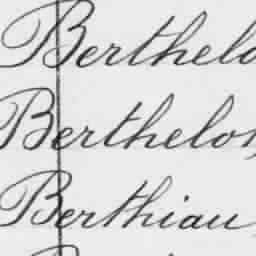 Berthelo
Berthelot
Berthiau